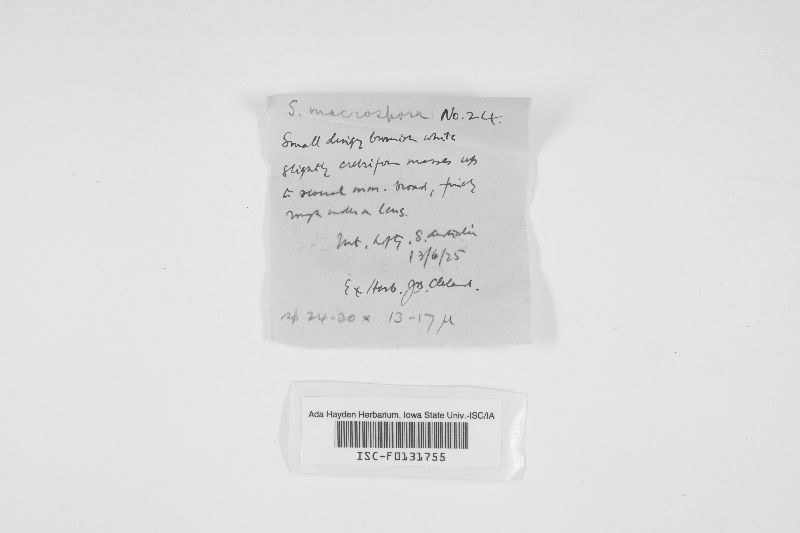 S. macrospora No. 24.
Small dingy brownish white
slightly cerebriform masses up
to several mm. broad, finely
rough under a lens.
Mt. Lofty, S. Australia
/6/25
Ex Herb. J.B. Cleland.
sp 24-30 x 13-17 µ
Ada Hayden Herbarium, Iowa State Univ.-ISC/IA
ISC-F0131755